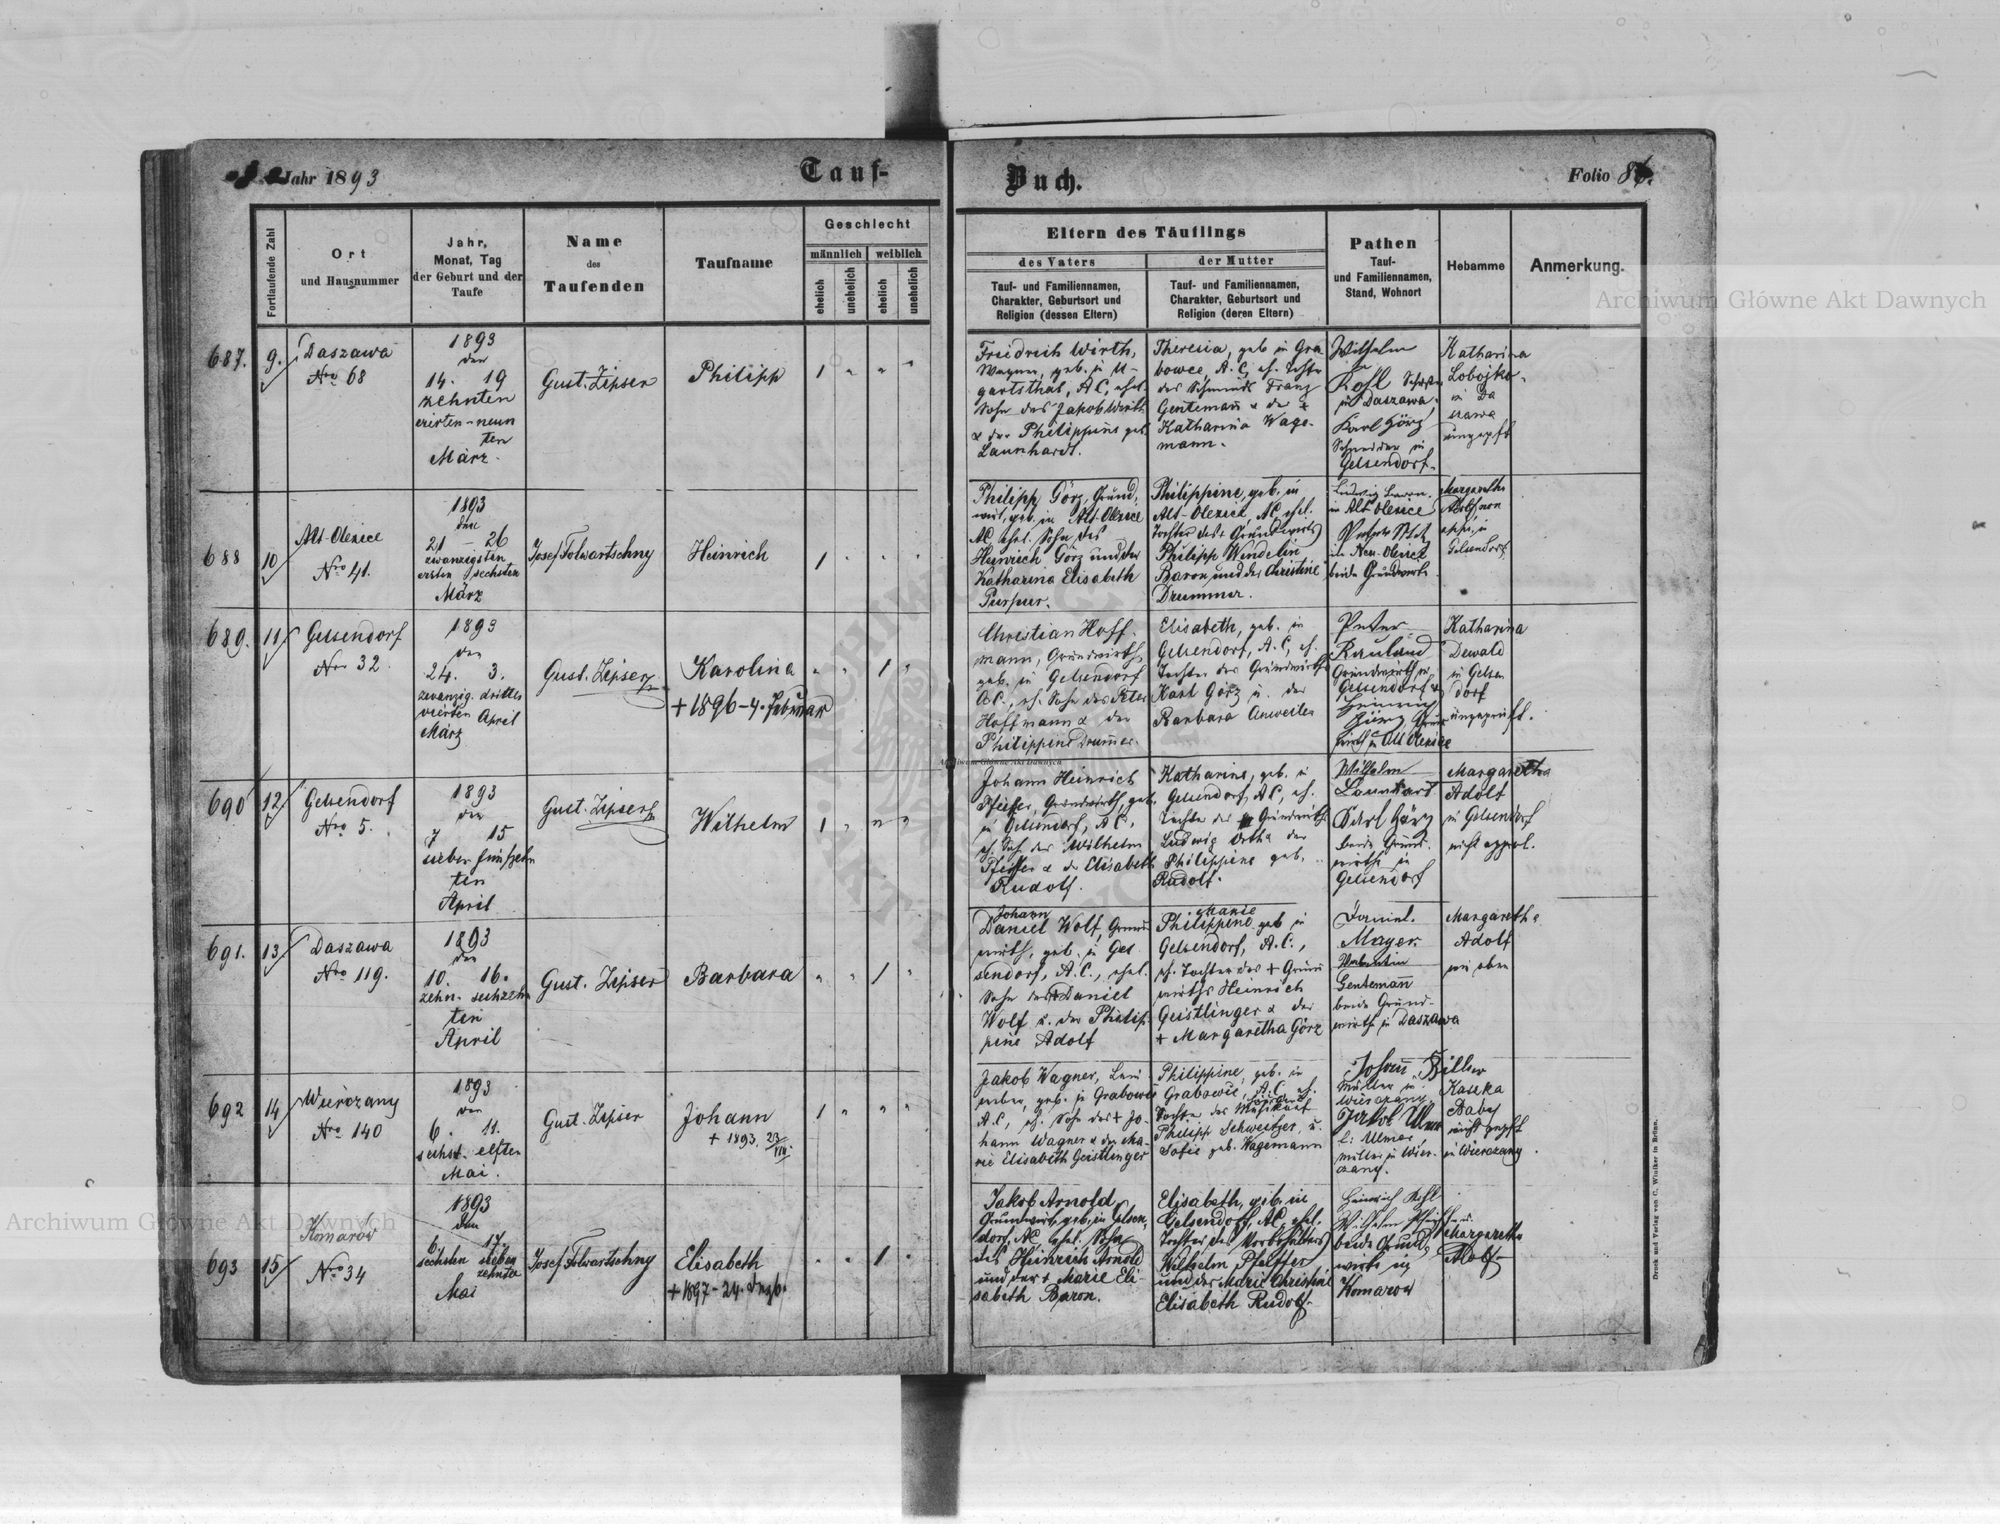 Jahr 1893
Tauf-
Buch.
Folio 86.
Fortlaufende Zahl
Ort
und Hausnummer
Jahr,
Monat, Tag
der Geburt und der
Taufe
Name
des
Taufenden
Taufname
Geschlecht
männlich
weiblich
ehelich
unehelich
ehelich
unehelich
Eltern des Täuflings
des Vaters
der Mutter
Tauf- und Familiennamen,
Charakter, Geburtsort und
Religion (dessen Eltern)
Tauf- und Familiennamen,
Charakter, Geburtsort und
Religion (deren Eltern)
Pathen
Tauf-
und Familiennamen,
Stand, Wohnort
Hebamme
Anmerkung.
687.
9.
Daszawa
Nro 68
1893
den
14. 19
zehnten
neun
ten
März.
Gust. Zipser
Philipp
1
Friedrich Wirth,
Wagner, geb. in U-
gartsthal, A.C., ehel.
Sohn des Jakob Wirth
& der Philippine geb.
Launhardt.
Theresia, geb in Gra-
bowce, A.C., eh. Tochter
des Schmieds Franz
Gentemann & der +
Katharina Wage-
mann.
Wilhelm
Kohl
in Daszawa.
Karl Görz
Schneider in
Gelsendorf.
Katharina
Lobojko.
in Da
szawa
ungepft
688
10
Alt-Olexice
Nro 41.
1893
den
21 – 26
zwanzigsten
ersten sechsten
März
Josef Folwartschny
Heinrich
1
Philipp Görz, Grund-
wirt, geb. in Alt-Olexice
AC, ehel. Sohn des
Heinrich Görz und der
Katharina Elisabeth
Purpur.
Philippine, geb. in
Alt-Olexice, AC, ehel.
Tochter des + Grundwirts
Philipp Wendelin
Baron und der Christine
Drummer.
Ludwig Baron
in Alt Olexice
Peter
in Neu-Olexice
beide Grundwirte
Margaretha
Adolf, non
appr., in
Gelsendorf.
689.
11
Gelsendorf
Nro 32.
1893
den
24. 3.
zwanzig. dritten
vierten April
März
Gust. Zipser
Karolina
+ 1896-4. Februar
1
Christian Hoff-
mann, Grundwirth,
geb. in Gelsendorf
A.C., eh. Sohn des Peter
Hoffmann & der
Philippine Drummer.
Elisabeth, geb. in
Gelsendorf, A.C., eh.
Tochter des Grundwirths
Karl Görz u. der
Barbara Anweiler
Peter
Rauland
Grundwirth in
Gelsendorf &
Görz, Grund-
wirth in Alt Olexice
Katharina
Dewald
in Gelsen
dorf
ungeprüft.
690
12
Gelsendorf
Nro 5.
1893
den
7 15
sieben fünfzehn
ten
April
Gust. Zipser
Wilhelm
1
Johann Heinrich
Pfeifer, Grundwirth, geb.
in Gelsendorf, A.C.,
eh. Sohn des Wilhelm
Pfeiffer & der Elisabeth
Rudolf.
Katharina, geb. in
Gelsendorf, A.C., eh.
Tochter des Grundwirth
Ludwig Ortha der
Philippine geb.
Rudolf.
Wilhelm
Launhart
Karl Görz
beide Grund-
wirthe in
Gelsendorf
Margaretha
Adolf
in Gelsendorf
nicht approb.
691.
13
Daszawa
Nro 119.
1893
den
10. 16.
zehn- sechzehn
ten
April
Gust. Zipser
Barbara
1
Johann
Daniel Wolf, Grund-
wirth, geb. in Gel
sendorf, A.C., ehel.
Sohn des + Daniel
Wolf u. der Philip-
pine Adolf
Marie
Philippine geb in
Gelsendorf, A.C.,
eh. Tochter des + Grund
wirths Heinrich
Geistlinger & der
+ Margaretha Görz
Daniel
Mayer
Valentin
Gentemann
beide Grund-
wirthe in Daszawa
Margaretha
Adolf
wie oben
692
14
Wierczany
Nro 140
1893
den
6. 11.
sechst- elften
Mai.
Gust. Zipser
Johann
+ 1893. 23/VII.
1
Jakob Wagner,
geb. in Grabowce
A.C., eh. Sohn des + Jo-
hann Wagner & der Ma-
rie Elisabeth Geistlinger
Philippine, geb. in
Grabowce, A.C. eh.
Tochter des
Philipp Schweitzer u.
Sofie geb. Wagemann
Johann Biller
Müller in
Wierczany
Jakob Ulmer
Müller in Wier-
czany.
Kaska
Baby
nicht gepft
in Wierczany
693
15
Komarow
Nro 34
1893
den
6. 17.
sechsten sieben
zehnten
Mai
Josef Folwartschny
Elisabeth
+ 1897-24. Dezb.
1
Jakob Arnold,
Grundwirt, geb. in Gelsen-
dorf, AC, ehel. Sohn
des Heinrich Arnold
und der + Marie Eli-
sabeth Baron.
Elisabeth, geb. in
Gelsendorf, AC, ehel.
Tochter des
Wilhelm Pfeiffer
und der Marie Christine
Elisabeth Rudolf.
Heinrich Kohl
Wilhelm
beide Grund-
wirte in
Komarow
Margaretha
Adolf
Druck und Verlag von C. Winiker in Brünn.
Archiwum Główne Akt Dawnych
Archiwum Główne Akt Dawnych
Archiwum Główne Akt Dawnych